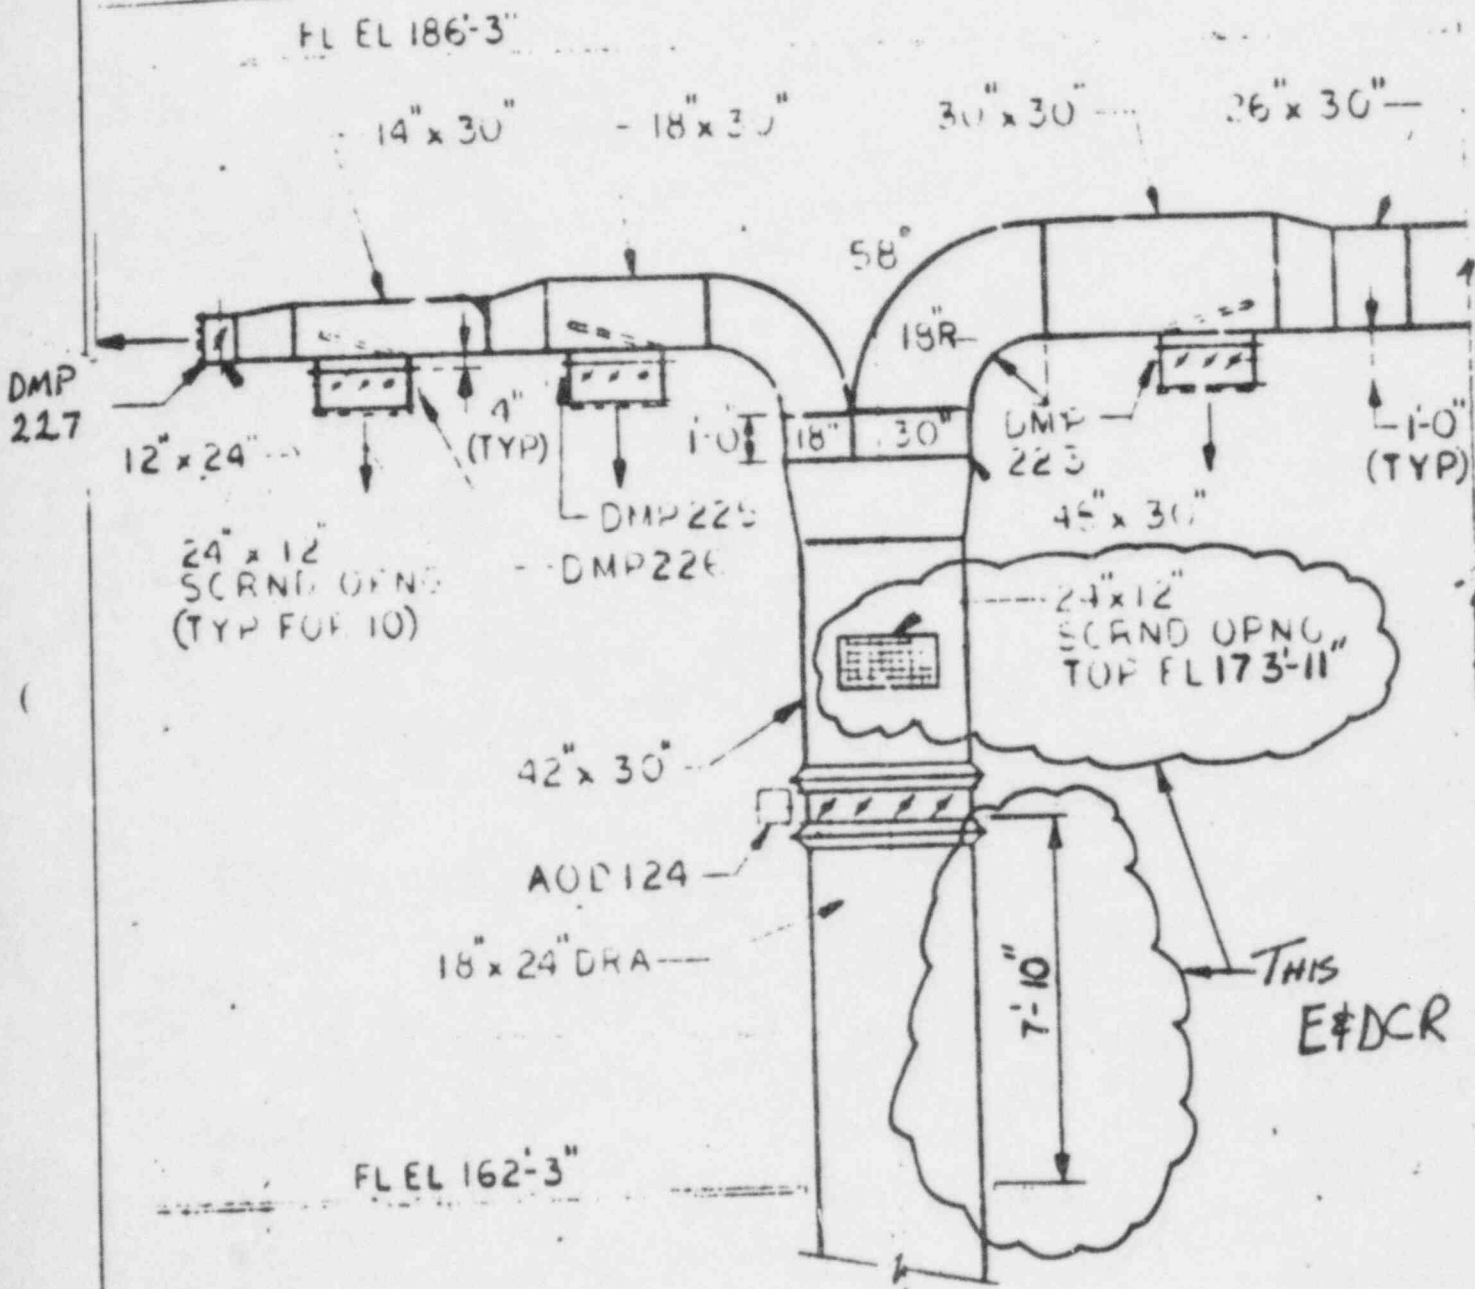 FL EL 186'-3"
14" x 30"
18" x 30"
30" x 30"
26" x 30"
58"
18"R
DMP
227
12" x 24"
4"
(TYP)
1'-0"
18"
30"
DMP
223
1'-0"
(TYP)
DMP 225
DMP 226
48" x 30"
24" x 12"
SCRND OPNG
(TYP FOR 10)
24" x 12"
SCRND OPNG
TOP EL 173'-11"
42" x 30"
AOD 124
18" x 24" DRA
7'-10"
THIS
E&DCR
FL EL 162'-3"